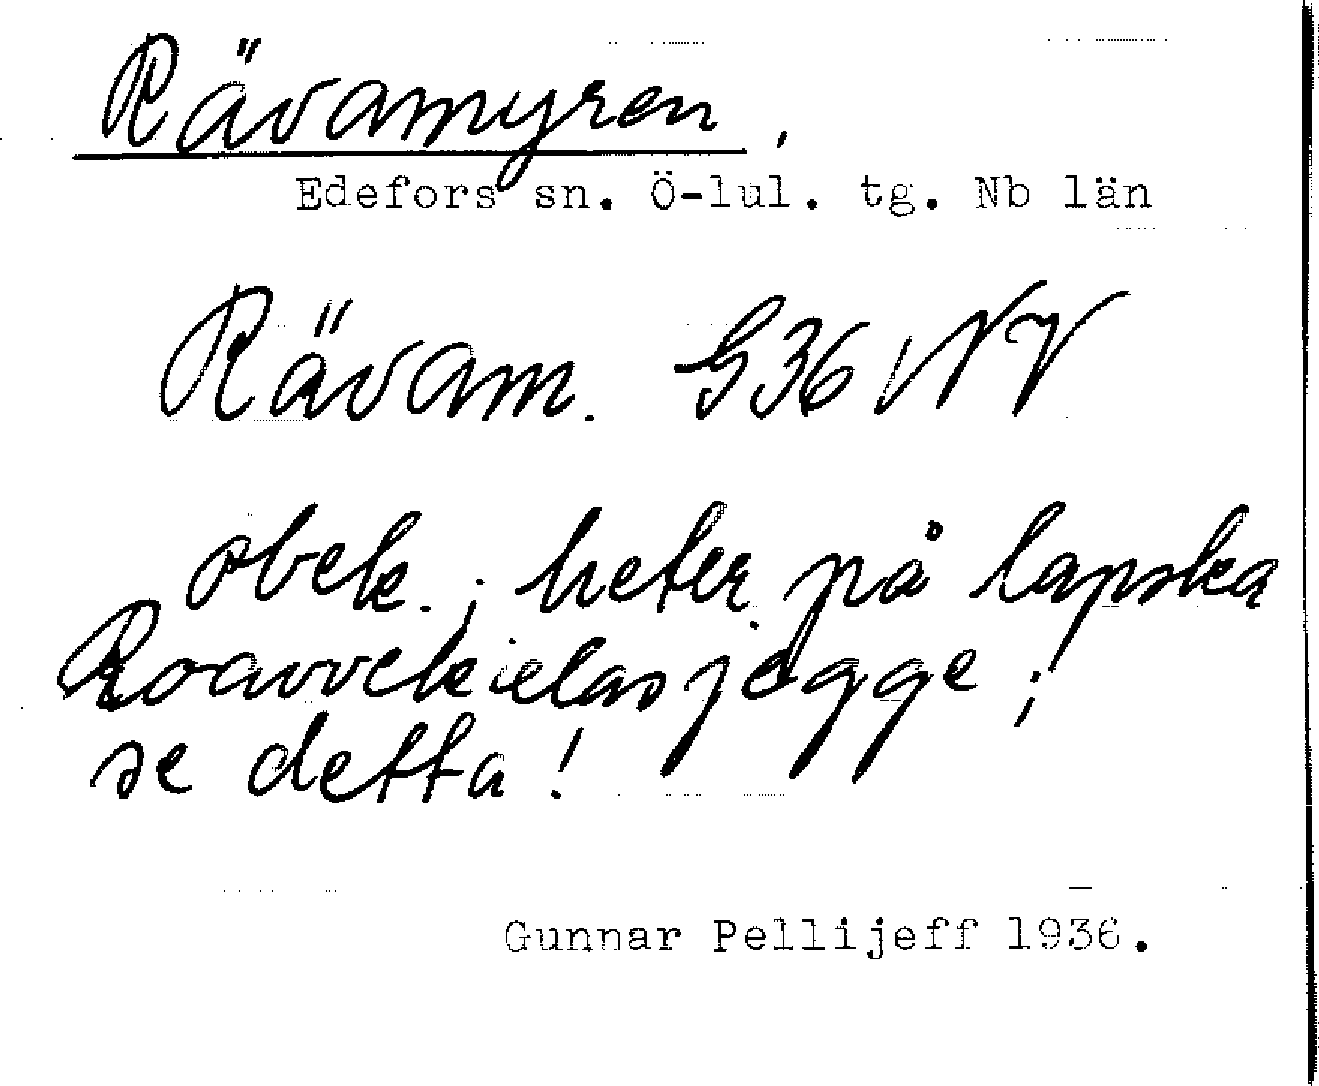 Rävamyren.
Edefors sn. Ö-lul. tg. Nb län
Rävam. G36 NV
obek.; heter på lapska
Roavvekielasjegge;
se detta!
Gunnar Pellijeff 1936.